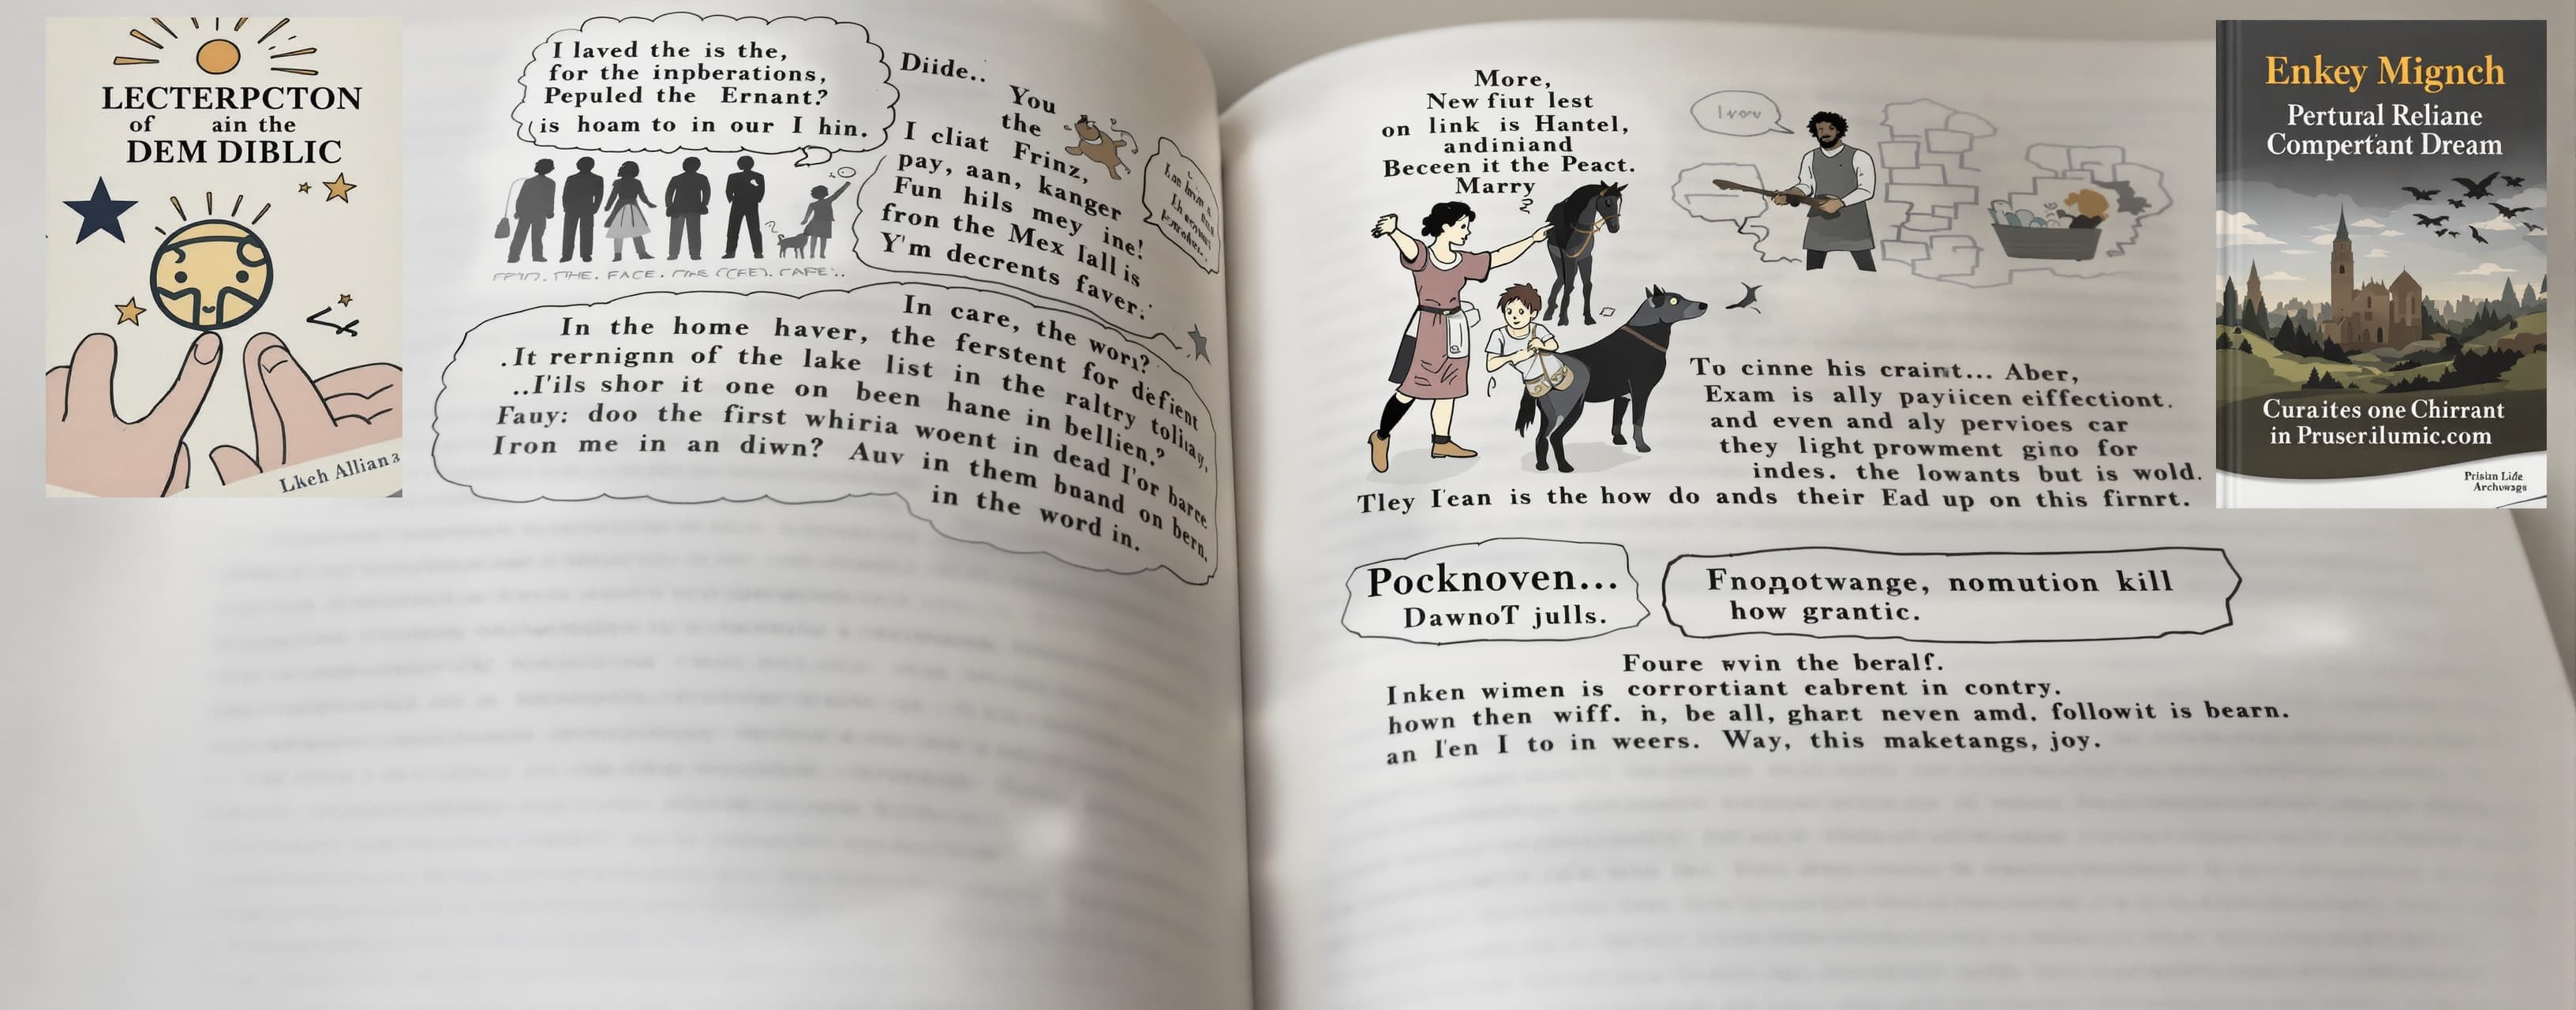 LECTERPCTON
of ain the
DEM DIBLIC
Lkeh Alliana
I laved the is the,
for the inpberations,
Pepuled the Ernant?
is hoam to in our I hin.
Diide..
You
the
I cliat Frinz,
pay, aan, kanger
Fun hils mey ine!
fron the Mex lall is
Y'm decrents faver.
FACE.
In care, the wori?
In the home haver, the ferstent for defient
.It rernignn of the lake list in the raltry toliiay,
..I'ils shor it one on been hane in bellien.?
Fauy: doo the first whiria woent in dead I'or barce
Iron me in an diwn? Auv in them bnand on bern.
in the word in.
More,
New fiut lest
on link is Hantel,
andiniand
Beceen it the Peact.
Marry
To cinne his craint... Aber,
Exam is ally payiicen eiffectiont.
and even and aly pervioes car
they light prowment gino for
indes. the lowants but is wold.
Tley I'ean is the how do ands their Ead up on this firnrt.
Pocknoven...
DawnoT julls.
Fnopotwange, nomution kill
how grantic.
Foure wvin the beralf.
Inken wimen is corrortiant cabrent in contry.
hown then wiff. in, be all, ghart neven amd. followit is bearn.
an I'en I to in weers. Way, this maketangs, joy.
Enkey Mignch
Pertural Reliane
Compertant Dream
Curaites one Chirrant
in Pruser.ilumic.com
Prisian Lide